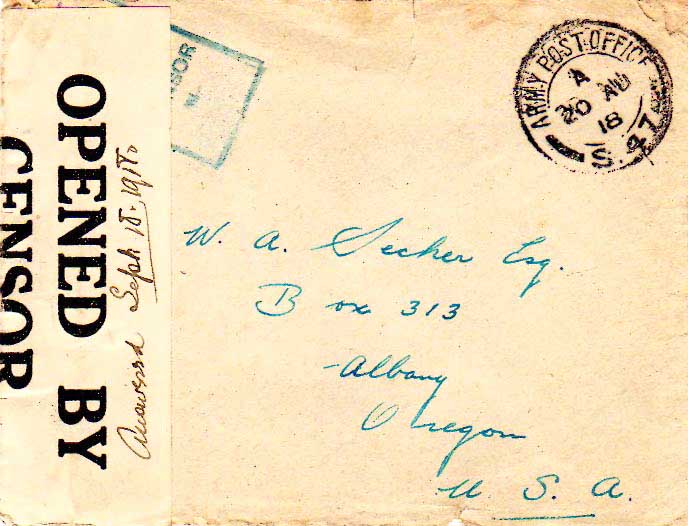 OPENED BY
CENSOR
Answered Sept 18. 1918.
SOR
ARMY POST OFFICE
A
20 AU
18
S. 47
W. A. Secher Esq.
Box 313
Albany
Oregon
U. S. A.